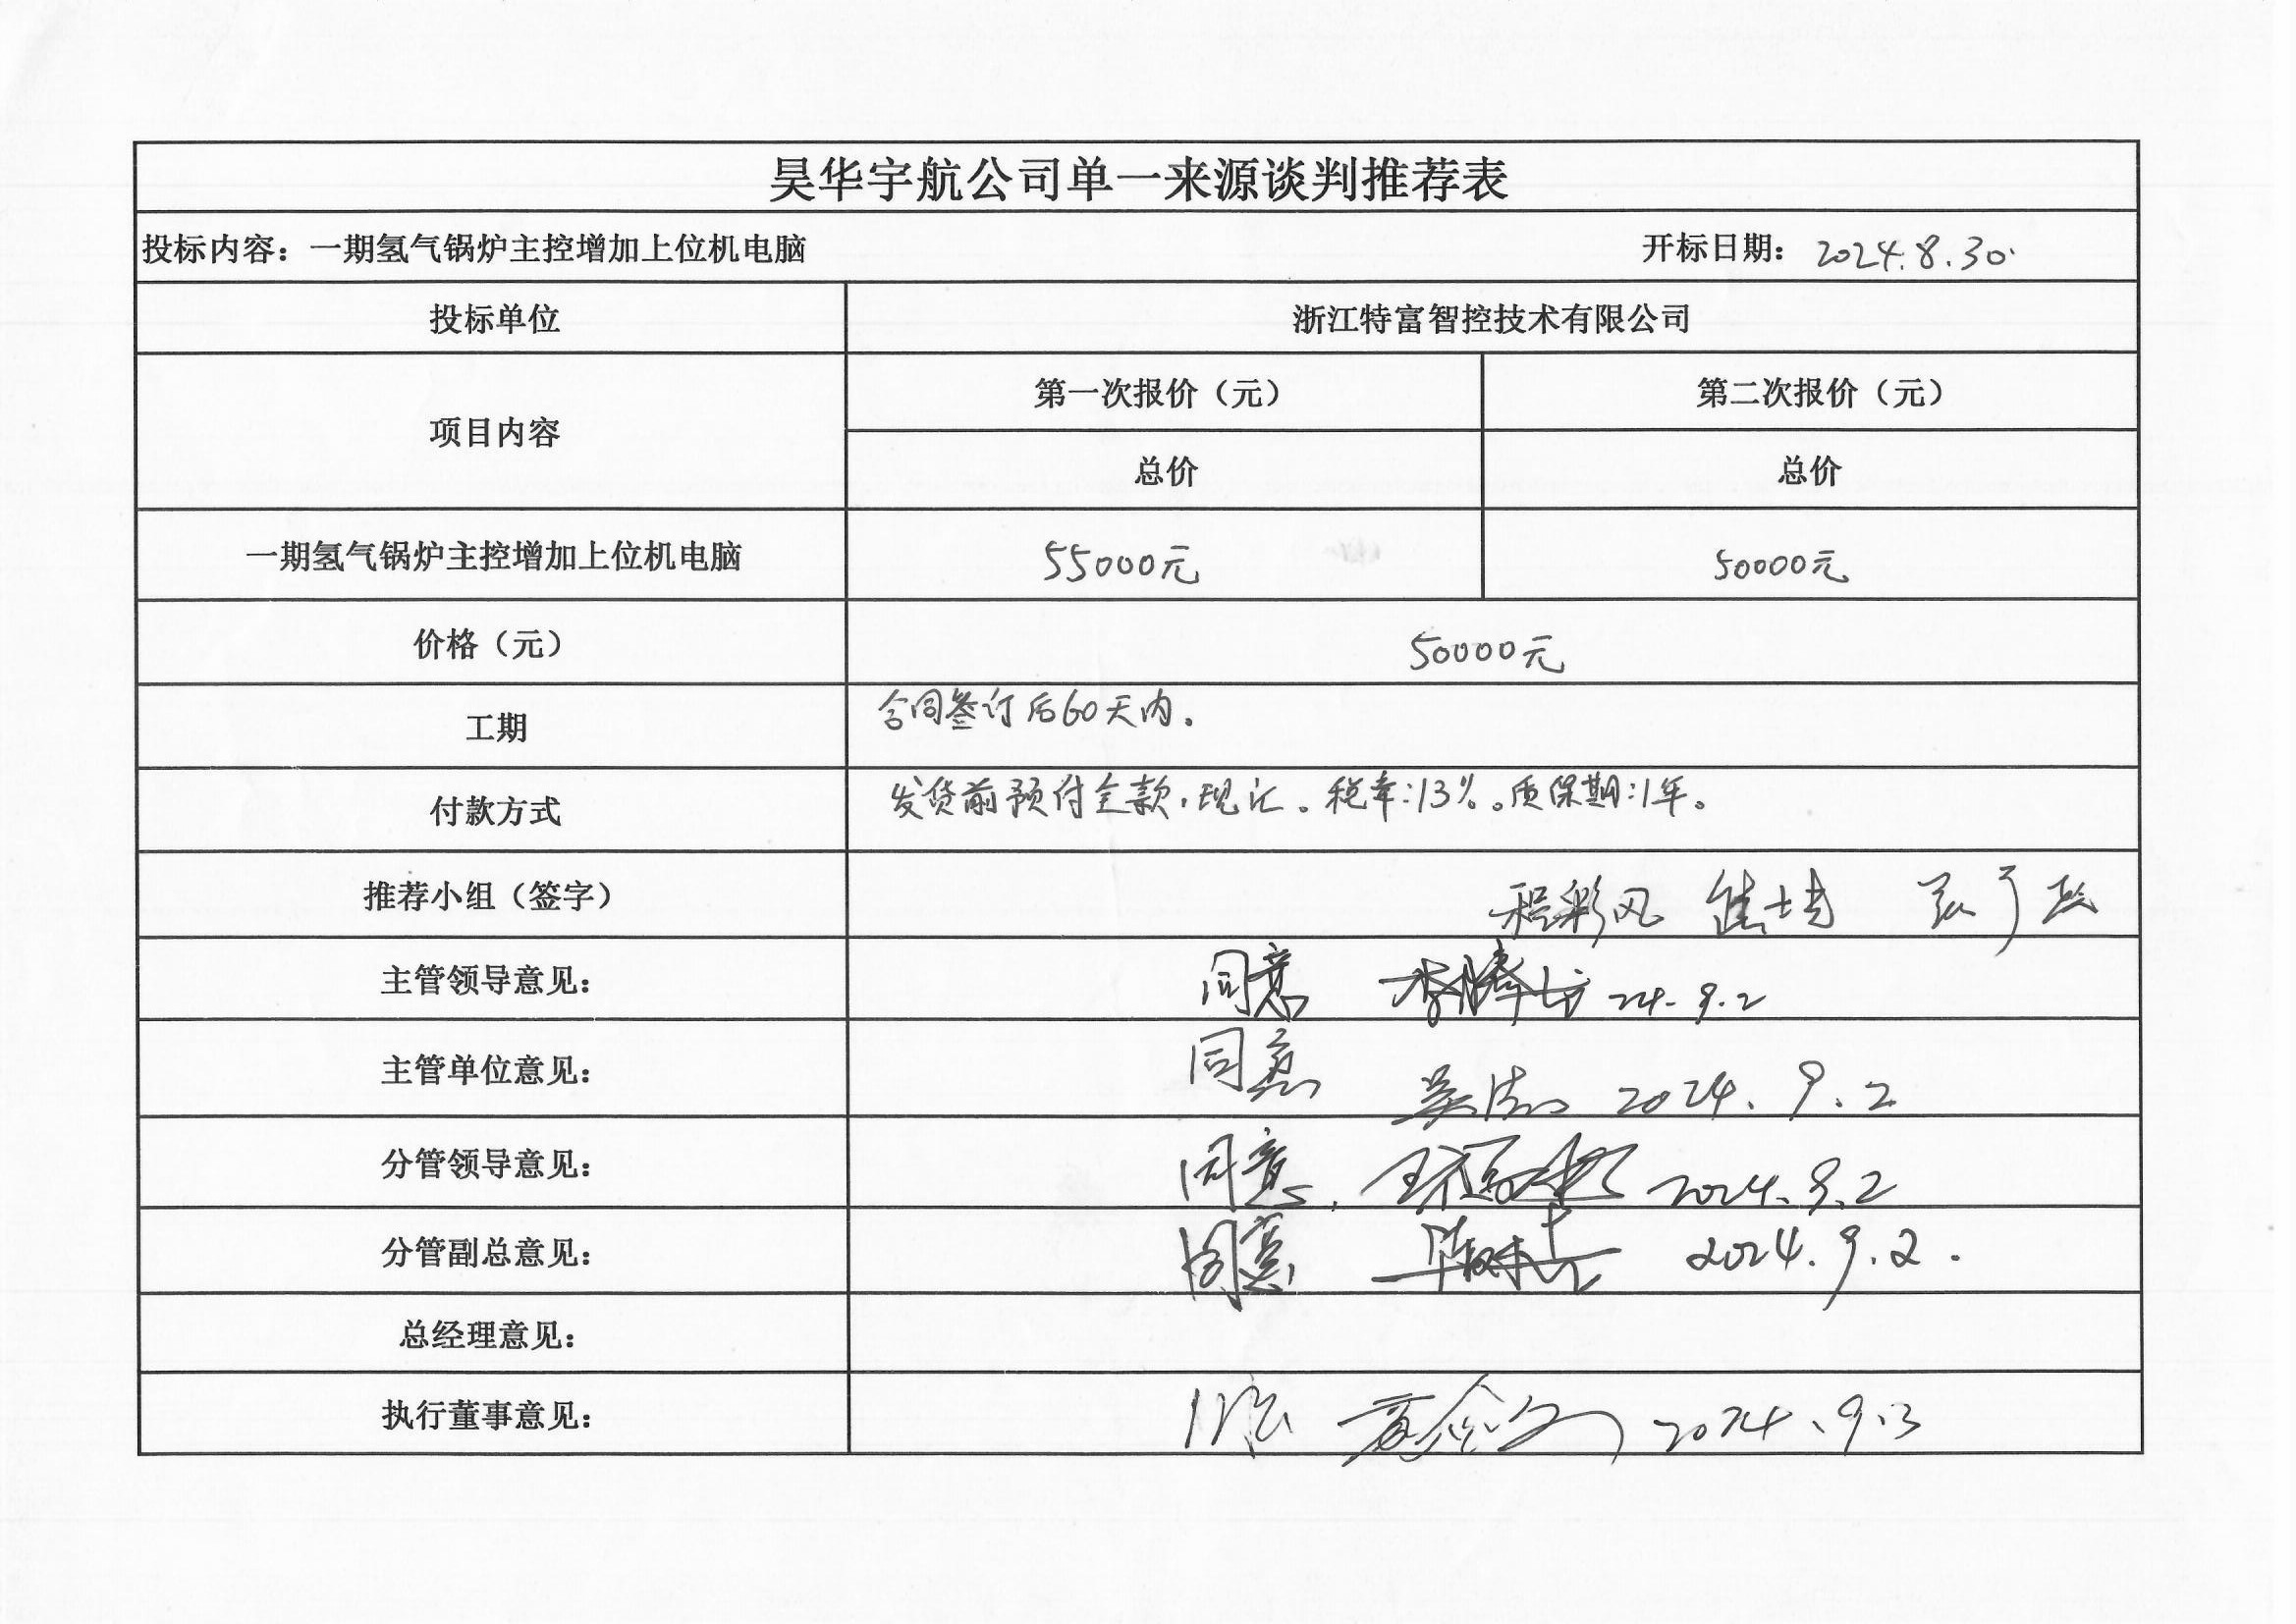 昊华宇航公司单一来源谈判推荐表
投标内容：一期氢气锅炉主控增加上位机电脑 开标日期：2024.8.30.
投标单位 浙江特富智控技术有限公司
项目内容 第一次报价（元） 第二次报价（元）
总价 总价
一期氢气锅炉主控增加上位机电脑 55000元 50000元
价格（元） 50000元
工期 合同签订后60天内。
付款方式 发货前预付全款，现汇。税率：13%。质保期：1年。
推荐小组（签字） 程彩风
主管领导意见： 同意 24.9.2
主管单位意见： 同意 2024.9.2
分管领导意见： 同意， 2024.9.2
分管副总意见： 同意 2024.9.2.
总经理意见：
执行董事意见： 2024.9.3